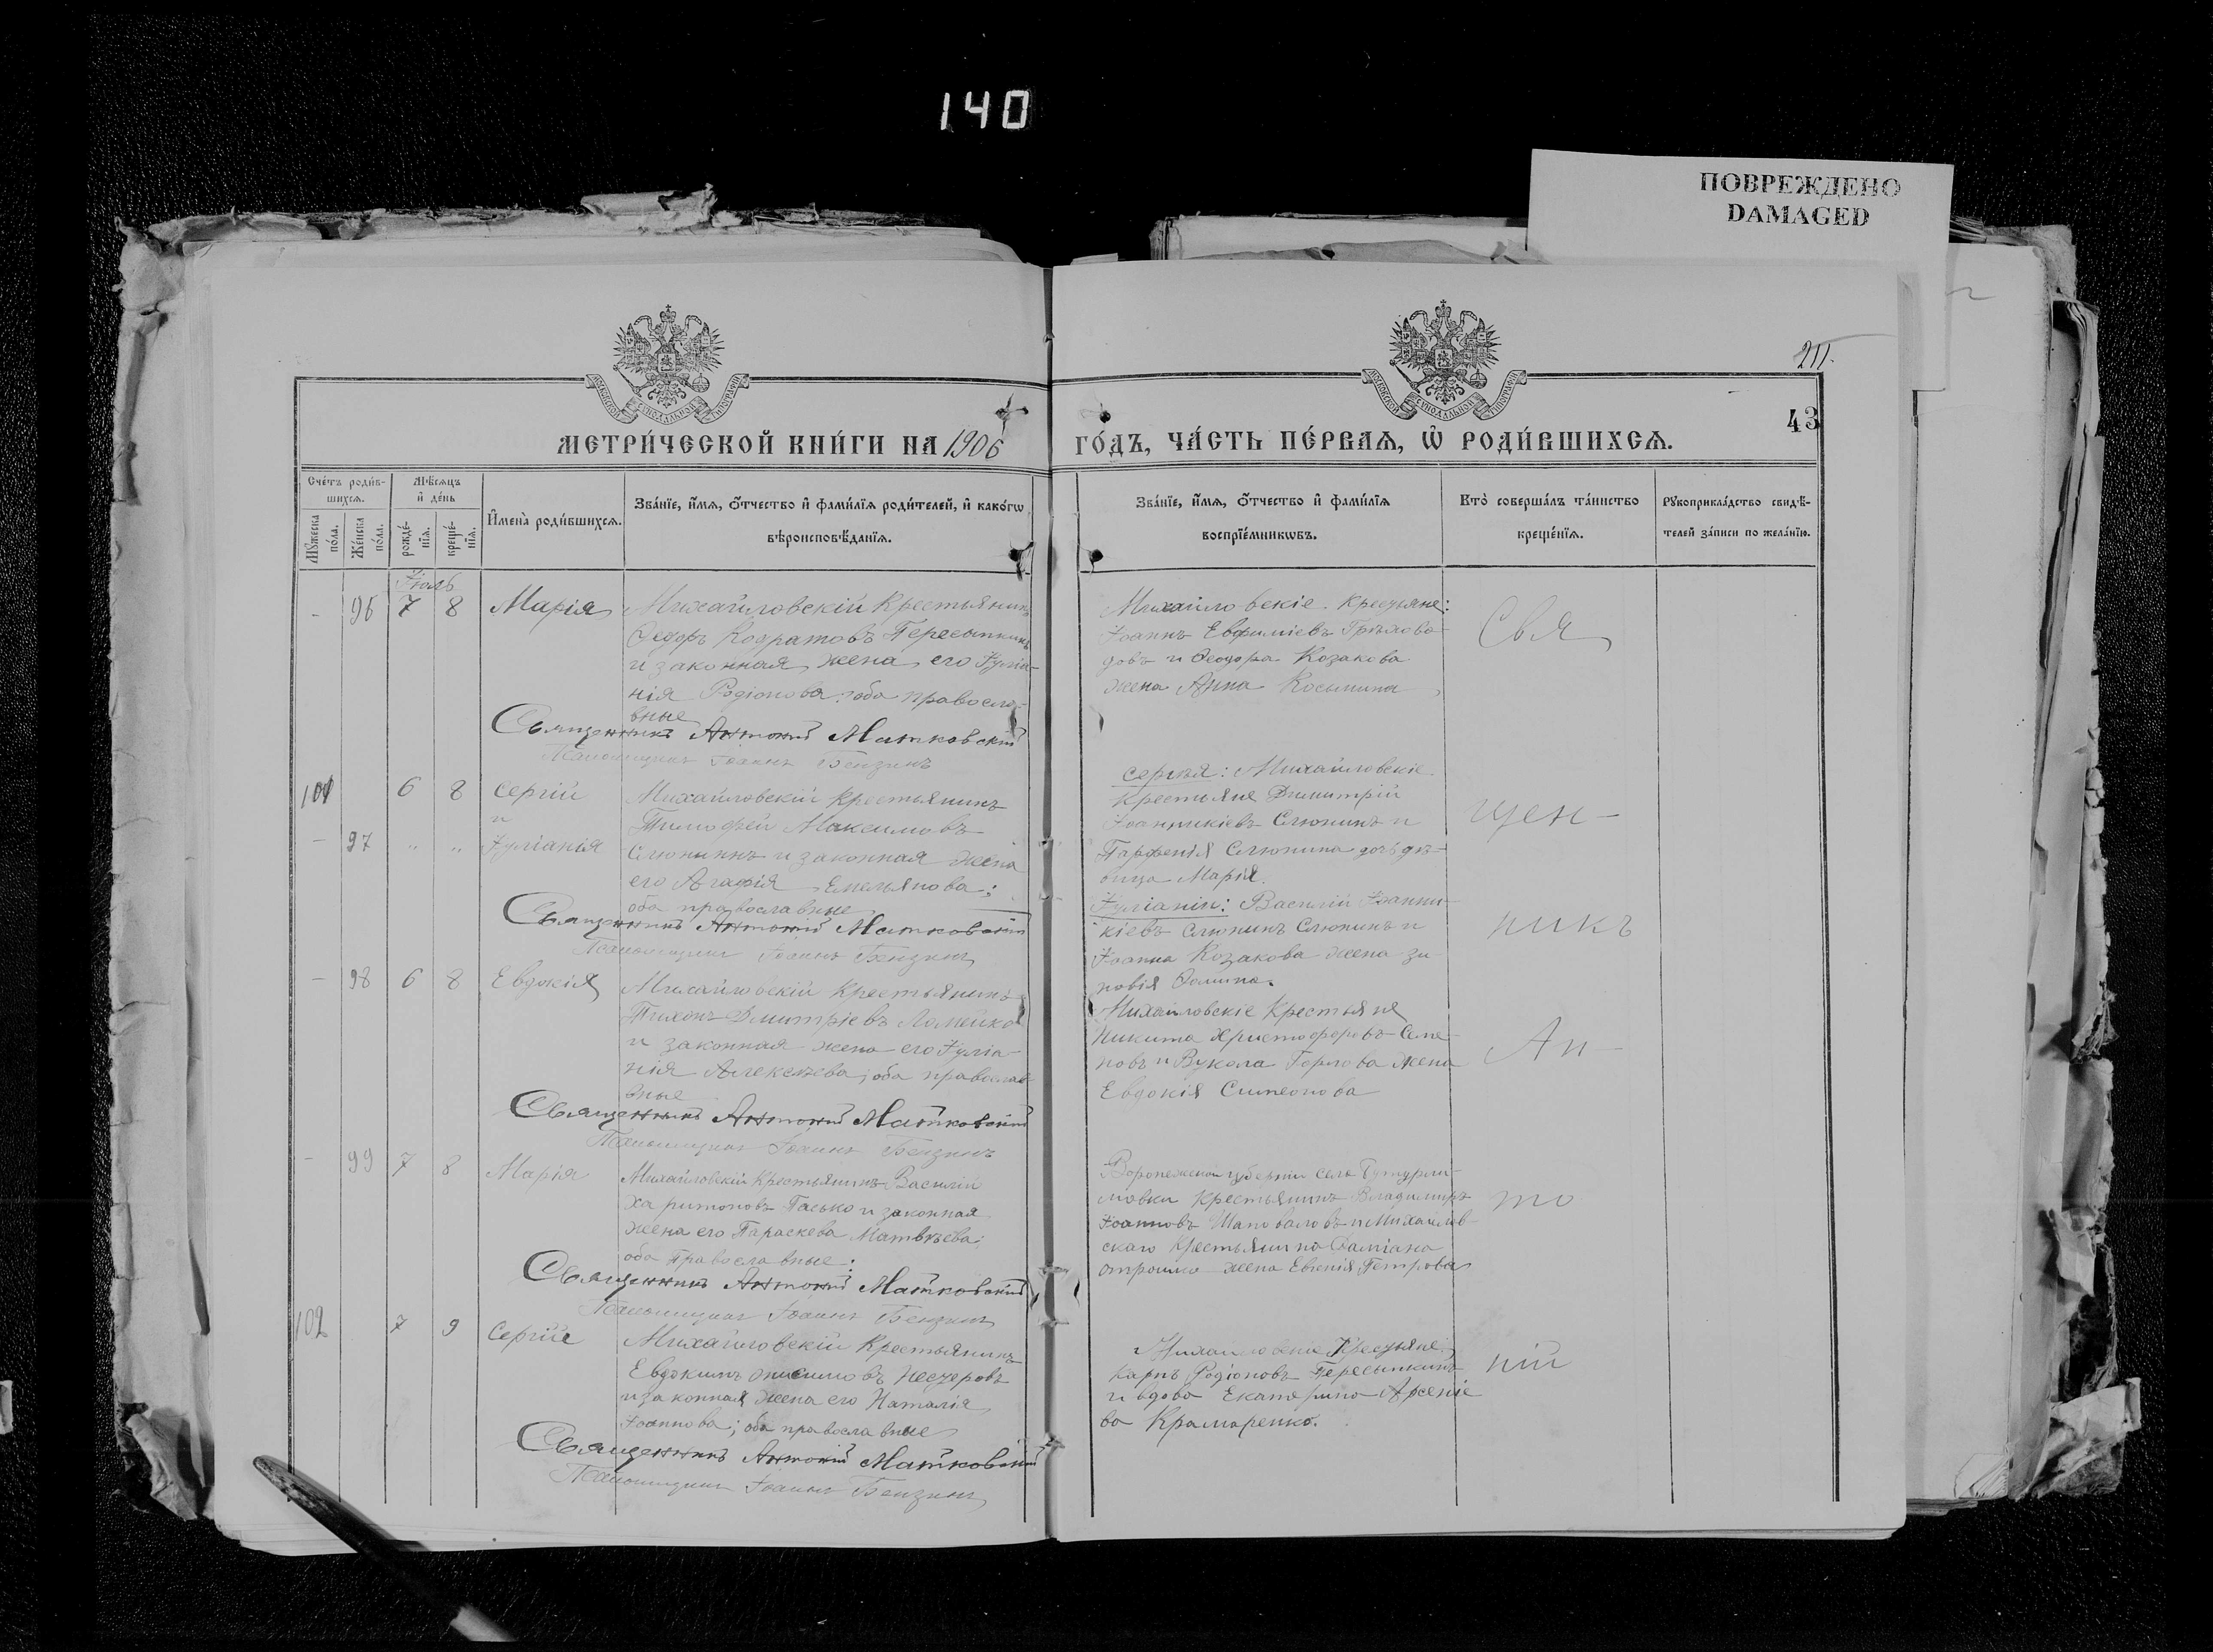 140
ПОВРЕЖДЕНО
DAMAGED
211.
43
МОСКОВСКОЙ СѴНОДАЛЬНОЙ ТИПОГРАФІИ
МОСКОВСКОЙ СѴНОДАЛЬНОЙ ТИПОГРАФІИ
МЕТРИ́ЧЕСКОЙ КНИ́ГИ НА 1906 ГО́ДЪ, ЧА́СТЬ ПЕ́РВАѦ, Ѡ҆ РОДИ́ВШИХСѦ.
Сче́тъ роди́в-
шихсѧ.
Мꙋ́жеска по́ла.
Же́нска по́ла.
Мѣ́сѧцъ
и҆ де́нь
рожде́-
нїѧ.
креще́-
нїѧ.
И҆мена̀ роди́вшихсѧ.
Зва́нїе, и҆́мѧ, ѻ҆́тчество и҆ фами́лїѧ роди́телей, и҆ како́гѡ
вѣроисповѣ́данїѧ.
Зва́нїе, и҆́мѧ, ѻ҆́тчество и҆ фами́лїѧ
воспрїе́мникѡвъ.
Кто̀ соверша́лъ та́инство
креще́нїѧ.
Рꙋкоприкла́дство свидѣ́-
телей за́писи по жела́нїю.
Іюль
- 96 7 8 Марія
Михайловскій Крестьянинъ
Ѳедоръ Кодратовъ Пересыпкинъ
и законная жена его Іуліа-
нія Родіонова: оба правосла-
вные
Священникъ Антоній Матковскій
Псаломщикъ Іоаннъ Бензинъ
Михайловскіе Крестьяне:
Іоаннъ Евфиміевъ
довъ и Ѳеодора Козакова
жена Анна Косьмина
Свя
101 6 8 Сергій
и
- 97 " " Іуліанія
Михайловскій Крестьянинъ
Тимофей Максимовъ
Слюнинъ и законная жена
его Агафія Емельянова;
оба православные
Священникъ Антоній Матковскій
Псаломщикъ Іоаннъ Бензинъ
Сергія: Михайловскіе
Крестьяне Димитрій
Іоанникіевъ Слюнинъ и
Парфенія Слюнина дочь дѣ-
вица Марія.
Іуліаніи: Василій Іоанни-
кіевъ Слюнинъ Слюнинъ и
Іоанна Козакова жена Зи-
новія Фомина.
щен-
никъ
- 98 6 8 Евдокія
Михайловскій Крестьянинъ
Тихонъ Дмитріевъ Ломейко
и законная жена его Іуліа-
нія Алексѣева; оба православ-
вные
Священникъ Антоній Матковскій
Псаломщикъ Іоаннъ Бензинъ
Михайловскіе Крестьяне
Никита Христофоровъ Семе-
новъ и Вукола Горлова жена
Евдокія Симеонова
Ан-
- 99 7 8 Марія
Михайловскій Крестьянинъ Василій
Харитоновъ Гасько и законная
жена его Параскева Матвѣева;
оба православные:
Священникъ Антоній Матковскій
Псаломщикъ Іоаннъ Бензинъ
Воронежской губерніи села Бутурли-
новки Крестьянинъ Владимиръ
Іоанновъ Шаповаловъ и Михайлов-
скаго Крестьянина Даміана
отрошко жена Евгенія Петрова
то
102 7 9 Сергій
Михайловскій Крестьянинъ
Евдокимъ Онисимовъ Нестеровъ
и законная жена его Наталія
Іоаннова; оба православные
Священникъ Антоній Матковскій
Псаломщикъ Іоаннъ Бензинъ
Михайловскіе Крестьяне:
Карпъ Родіоновъ Пересыпкинъ
и вдова Екатерина Арсеніе
ва Крамаренко.
ній